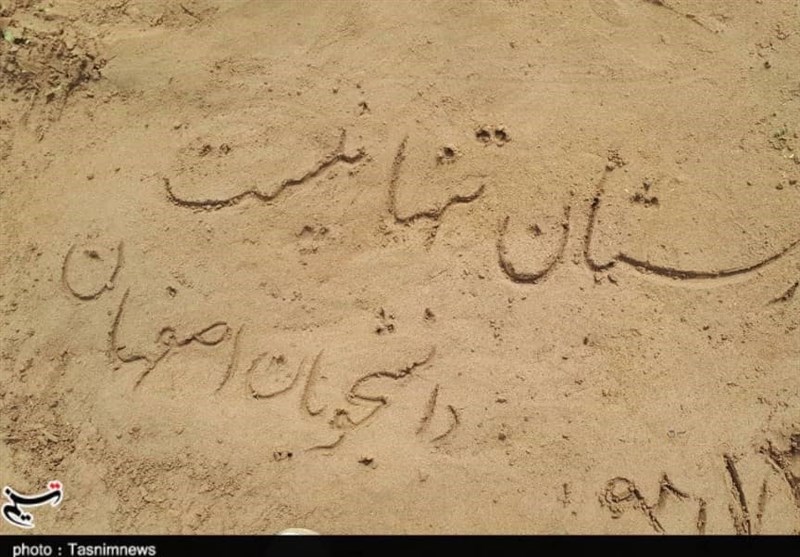 رستان تنها نیست
دانشجویان اصفهان
تسنیم
photo : Tasnimnews